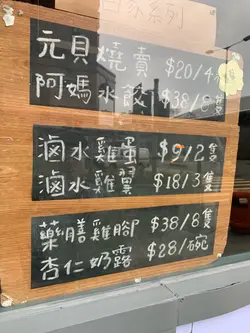 自家系列
元貝燒賣 $20/4隻
阿媽水餃 $38/8隻
滷水雞蛋 $9/2隻
滷水雞翼 $18/3隻
藥膳雞腳 $38/8隻
杏仁奶露 $28/碗